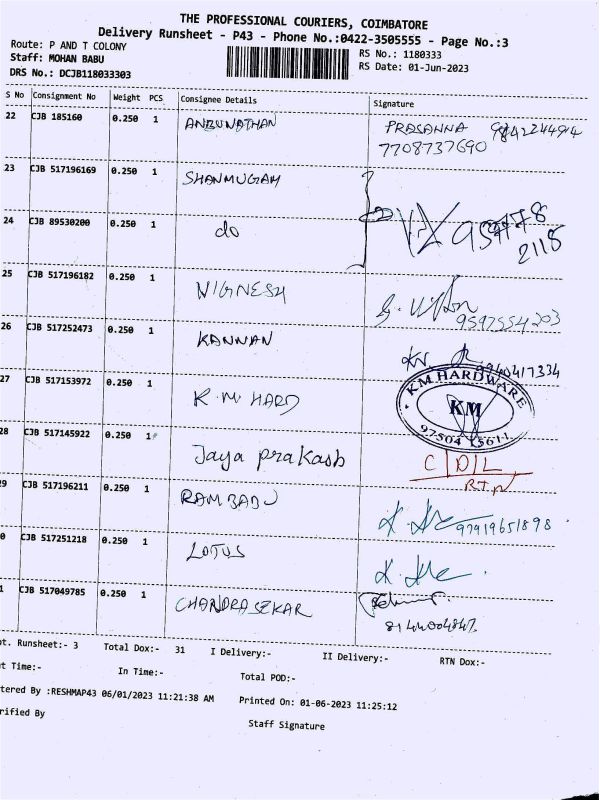 THE PROFESSIONAL COURIERS, COIMBATORE
Delivery Runsheet - P43 - Phone No.:0422-3505555 - Page No.:3
Route: P AND T COLONY
Staff: MOHAN BABU
DRS No.: DCJB118033303
RS No.: 1180333
RS Date: 01-Jun-2023
S No Consignment No Weight PCS Consignee Details Signature
22 CJB 185160 0.250 1 ANBUNATHAN PRASANNA 9842244914
7708737690
23 CJB 517196169 0.250 1 SHANMUGAM
24 CJB 89530200 0.250 1 do
2118
25 CJB 517196182 0.250 1 VIGNESH
9597554203
26 CJB 517252473 0.250 1 KANNAN 9940417334
27 CJB 517153972 0.250 1 K.M HARD KM HARDWARE
KM
97504 15611
28 CJB 517145922 0.250 1 Jaya prakash C/D/L
R.T.N
9 CJB 517196211 0.250 1 RAM BABU 97919651898
0 CJB 517251218 0.250 1 LOTUS
1 CJB 517049785 0.250 1 CHANDRASEKAR
ot. Runsheet:- 3 Total Dox:- 31 I Delivery:- II Delivery:- RTN Dox:-
ut Time:- In Time:- Total POD:-
tered By :RESHMAP43 06/01/2023 11:21:38 AM Printed On: 01-06-2023 11:25:12
rified By Staff Signature